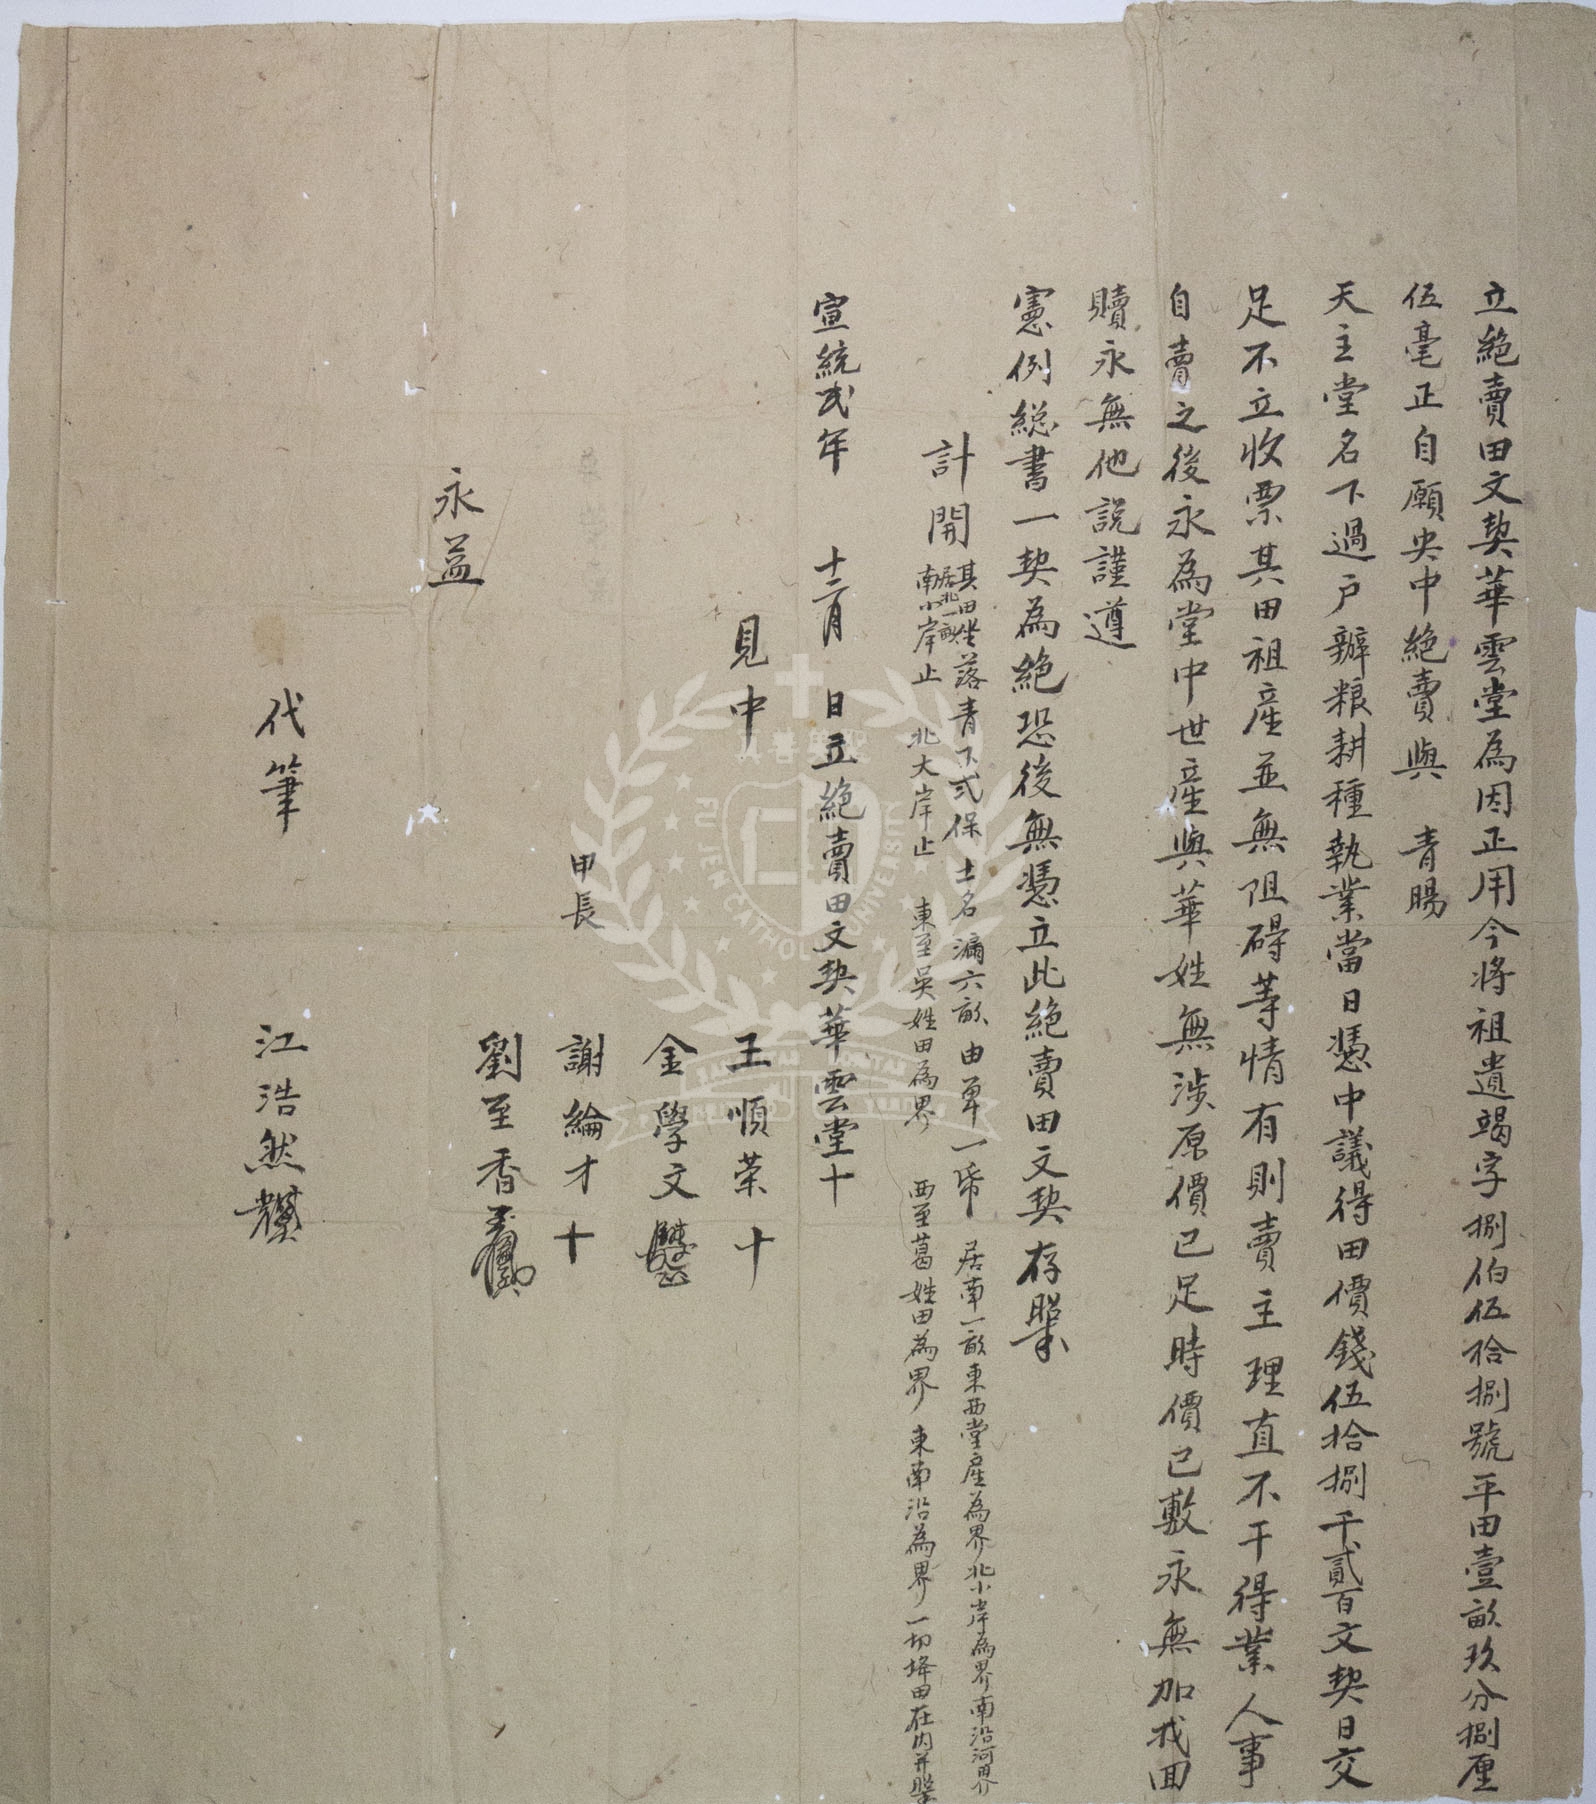 立絕賣田文契華雲堂為因正用今將祖遺竭字捌伯伍拾捌號平田壹畝玖分捌厘
伍毫正自願央中絕賣與 青暘
天主堂名下過户辦粮耕種執業當日憑中議得田價錢伍拾捌千貳百文契日交
足不立收票其田祖產並無阻碍等情有則賣主理直不干得業人事
自賣之後永為堂中世產與華姓無涉原價已足時價已敷永無加找回
贖永無他說謹遵
憲例総書一契為絕恐後無憑立此絕賣田文契存照
計開
其田坐落青下弍保 土名漏六畝 由單一帋 居南一畝東西堂產為界北小岸為界南沿河界
居北一畝
南小岸止 北大岸止 東至吳姓田為界 西至葛姓田為界 東南沿為界 一切埄田在內并照
宣統弍年 十二月 日立絕賣田文契華雲堂十
見中 王順荣十
金學文
甲長 謝綸才十
劉至香
永益
代筆 江浩然
FU JEN CATHOLIC UNIVERSITY